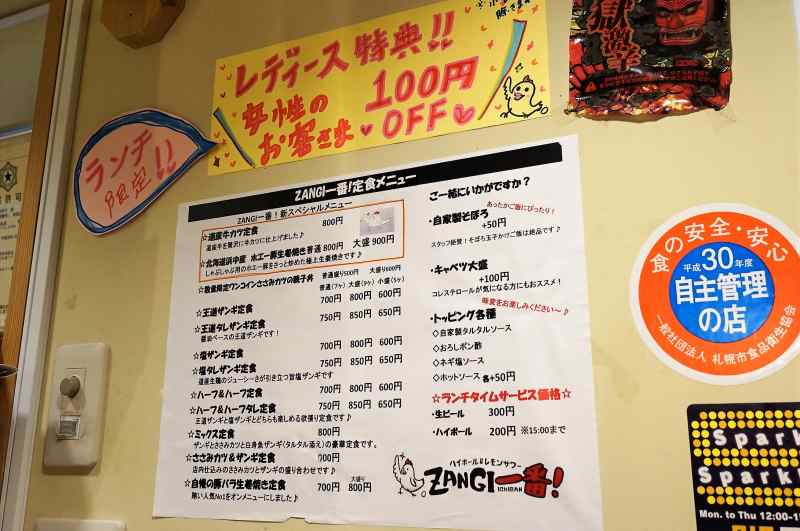 レディース特典!!
女性のお客さま
100円OFF
ランチ限定!!
獄激辛
ZANGI一番!定食メニュー
ZANGI一番!新スペシャルメニュー
☆道産牛カツ定食 800円
道産牛を贅沢に牛カツに仕上げました♪
☆北海道浜中産 ホエー豚生姜焼き 普通 800円 大盛 900円
しゃぶしゃぶ用のホエー豚をさっと炒めた極上生姜焼きです♪
☆数量限定ワンコインささみカツの親子丼 普通盛り500円 大盛り600円
普通(7ヶ) 大盛(9ヶ) 小盛(5ヶ)
☆王道ザンギ定食 700円 800円 600円
☆王道タレザンギ定食 750円 850円 650円
醤油ベースの王道ザンギです!
☆塩ザンギ定食 700円 800円 600円
☆塩タレザンギ定食 750円 850円 650円
道産生鶏のジューシーさが引き立つ旨塩ザンギです
☆ハーフ&ハーフ定食 700円 800円 600円
☆ハーフ&ハーフタレ定食 750円 850円 650円
王道ザンギと塩ザンギとどちらも楽しめる欲張り定食です♪
☆ミックス定食 800円
ザンギとささみカツと白身魚ザンギ(タルタル添え)の豪華定食です。
☆ささみカツ&ザンギ定食
店内仕込みのささみカツとザンギの盛り合わせです♪
☆自慢の豚バラ生姜焼き定食 700円 大盛り 800円
賄い人気No1をオンメニューにしました♪
ご一緒にいかがですか?
あったかご飯にぴったり!
・自家製そぼろ
+50円
スタッフ絶賛!そぼろ玉子かけご飯は絶品です♪
・キャベツ大盛
+100円
コレステロールが気になる方にもおススメ!
味変をお楽しみください~♪
・トッピング各種
◇自家製タルタルソース
◇おろしポン酢
◇ネギ塩ソース
◇ホットソース 各+50円
☆ランチタイムサービス価格☆
・生ビール 300円
・ハイボール 200円 ※15:00まで
ハイボール&レモンサワー
ZANGI一番!
ICHIBAN
食の安全・安心
平成30年度
自主管理の店
一般社団法人 札幌市食品衛生協会
Spark
Spark
Mon. to Thu 12:00~